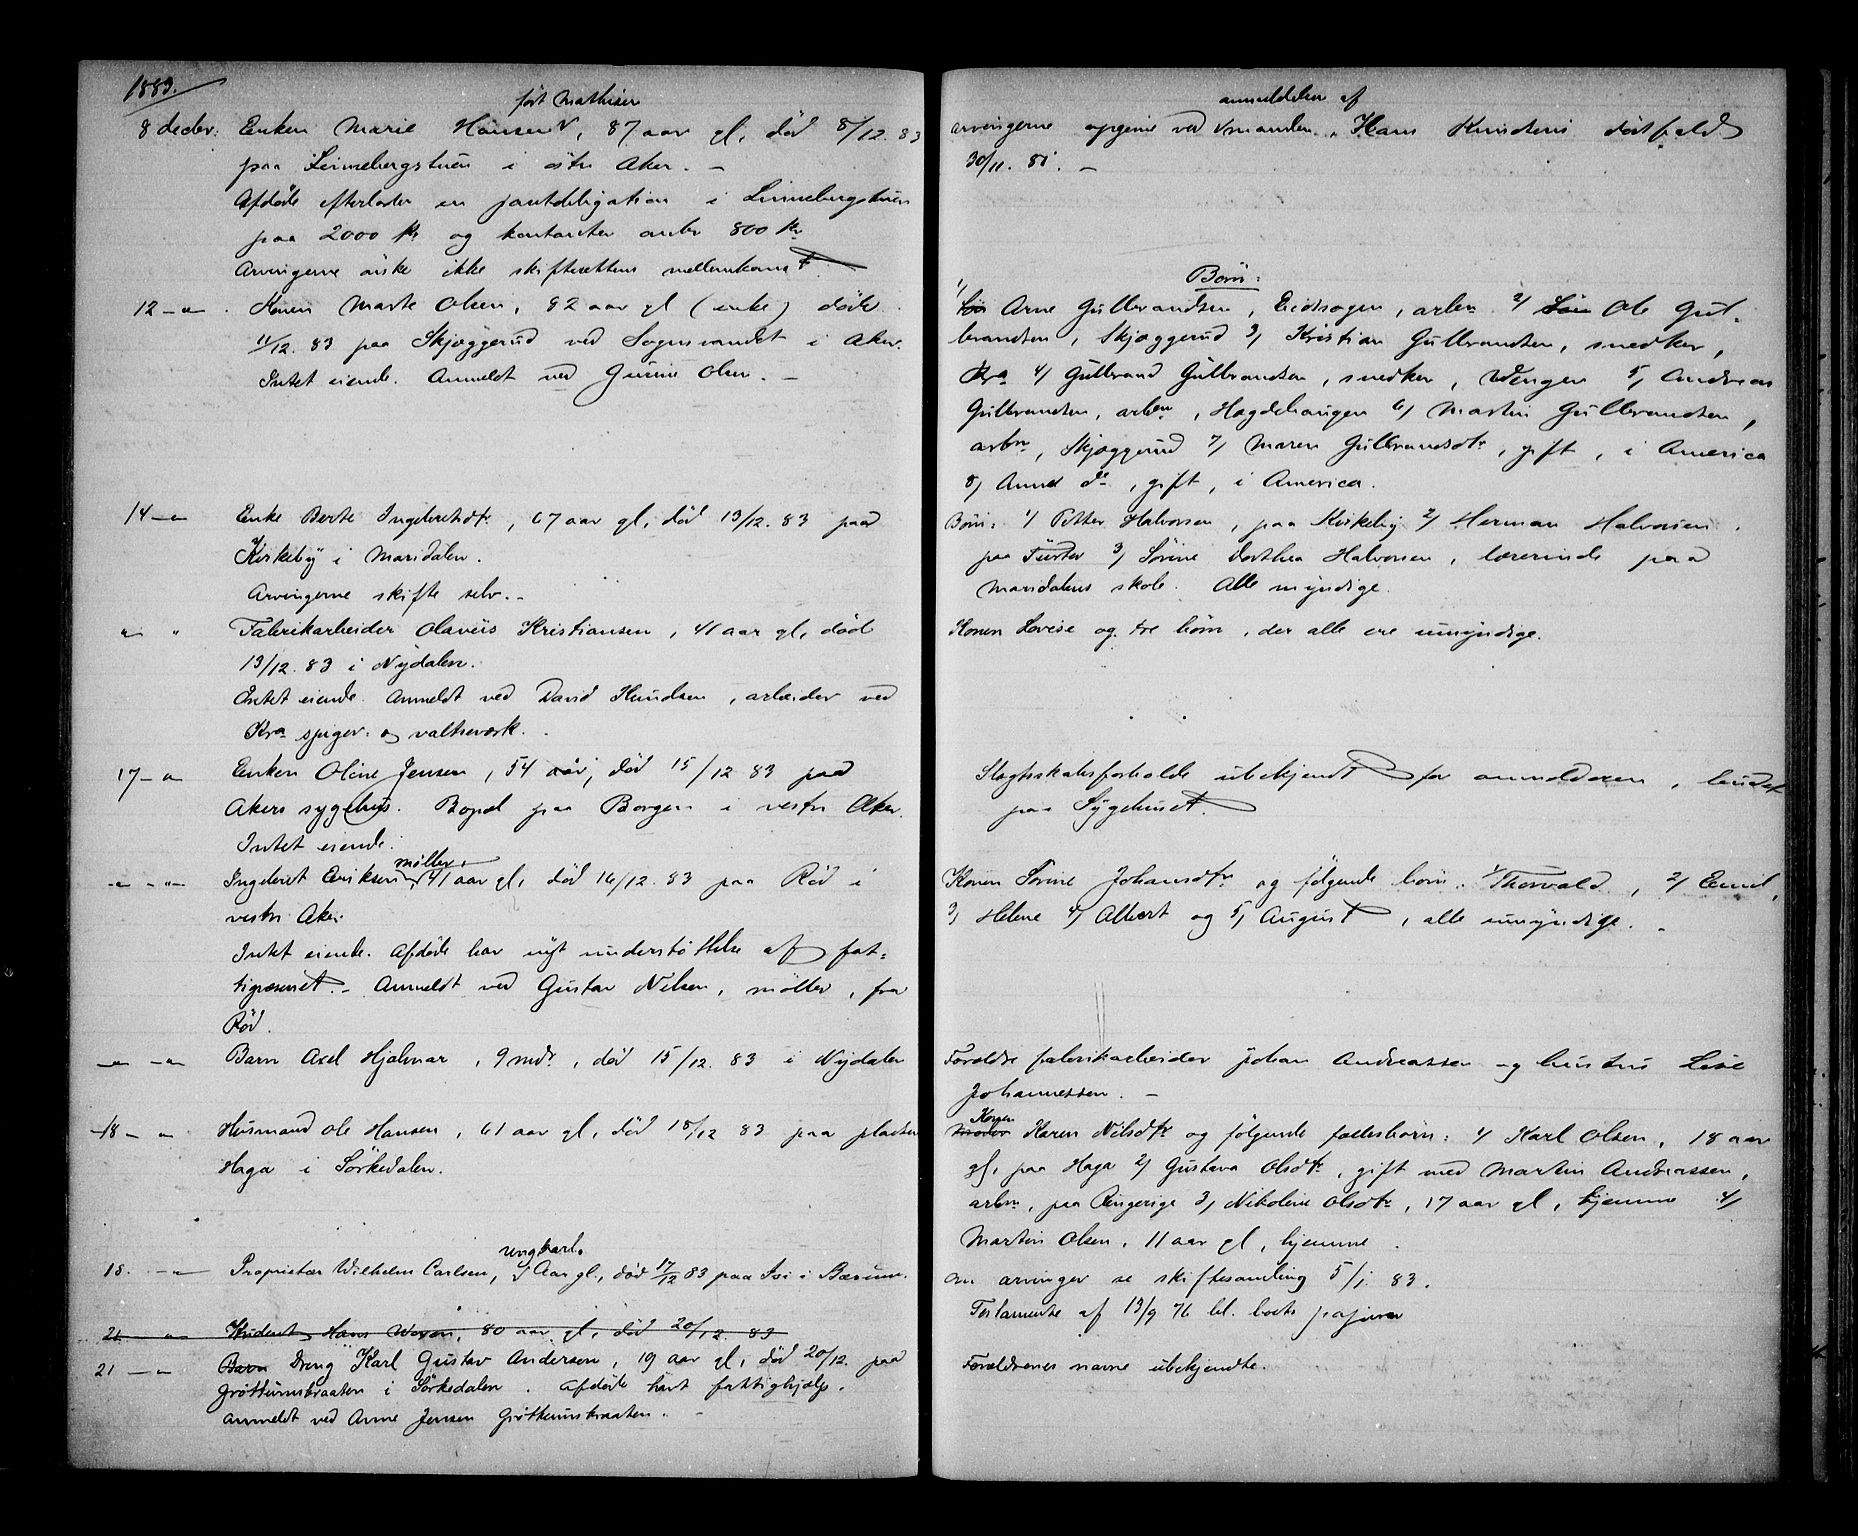 1883.
født Mathisen
8 decbr. Enken Marie Hansen, 87 aar gl, død 8/12. 83
paa Linnebergstuen i østre Aker. –
Afdøde efterlader en pantobligation i Linnebergstuen
paa 2000 kr og kontanter 800 kr
Arvingerne ønske ikke skifterettens mellemkomst.
12 – " – Konen Marte Olsen, 82 aar gl (enke) døde
11/12. 83 paa Skjæggerud ved Sognsvandet i Aker.
Intet eiende. Anmeldt ved Gurine Olsen. –
14 – " Enke Berte Ingebretsdtr, 67 aar gl, død 13/12. 83 paa
Kirkeby i Maridalen.
Arvingerne skifte selv. –
" " Fabrikarbeider Olavus Kristiansen, 41 aar gl, død
13/12. 83 i Nydalen.
Intet eiende. Anmeldt ved David Knudsen, arbeider ved
Kra spiger- og valseværk.
17 – " Enken Oline Jensen, 54 aar, død 15/12 83 paa
Akers sygehus. Bopæl paa Borgen i vestre Aker.
Intet eiende.
møller,
– " – " – Ingebret Eriksen, 41 aar gl, død 16/12. 83 paa Rød i
vestre Aker.
Intet eiende. Afdøde har nydt understøttelse af fat-
tigvæsenet. – Anmeldt ved Gustav Nilsen, møller, fra
Rød.
– " – " Barn Axel Hjalmar, 9 mdr, død 15/12. 83 i Nydalen
18 – " Husmand Ole Hansen, 61 aar gl, død 18/12 83 paa pladsen
Haga i Sørkedalen.
ungkarl.
18. – " Proprietær Wilhelm Carlsen, Aar gl., død 17/12 83 paa i Bærum.
21 – " Hans 80 aar gl, død 20/12. 83
21 – " Barn Dreng Karl Gustav Andersen, 19 aar gl, død 20/12. paa
Grøttumsbraaten i Sørkedalen. Afdøde havt fattighjælp.
Anmeldt ved Anne Jensen Grøttumsbraaten. –
anmeldelse af
arvingerne opgivne ved formanden Hans Knudsens dødsfald
30/11. 81. –
Børn:
1/ Søn Arne Gulbrandsen, Eidsvogen, arbm. 2/ Søn Ole Gul-
brandsen, Skjæggerud 3/ Kristian Gulbrandsen, snedker,
Kra 4/ Gulbrand Gulbrandsen, snedker, 5/ Andreas
Gulbrandsen, arbm, Hægdehaugen 6/ Martin Gulbrandsen,
arbm, Skjæggerud 7/ Maren Gulbrandsdtr, gift, i America
8/ Anne do, gift, i America.
Børn: 1/ Petter Halvorsen, paa Kirkeby 2/ Herman Halvorsen
paa 3/ Sørine Dorthea Halvorsen, lærerinde paa
Maridalens skole. Alle myndige.
Konen Lovise og tre børn, der alle ere umyndige.
Slægtskabsforholde ubekjendt for anmelderen,
paa Sygehuset.
Konen Sørine Johansdtr og følgende børn: 1/ Thorvald, 2/ Emil,
3/ Helene 4/ Albert og 5/ August, alle umyndige. –
Forældre fabrikarbeider Johan Andreassen og hustru Lise
Johannessen. –
Konen
Moder Karen Nilsdtr og følgende fællesbørn: 1/ Karl Olsen, 18 aar
gl, paa Haga 2/ Gustava Olsdtr, gift med Martin Andreassen,
arbm, paa Ringerige 3/ Nikoline Olsdtr, 17 aar gl, hjemme 4/
Martin Olsen, 11 aar gl, hjemme.
Om arvinger se skiftesamling 5/1. 83.
Testamente af 13/9 76 bl. boets papirer
Forældrenes navne ubekjendte.